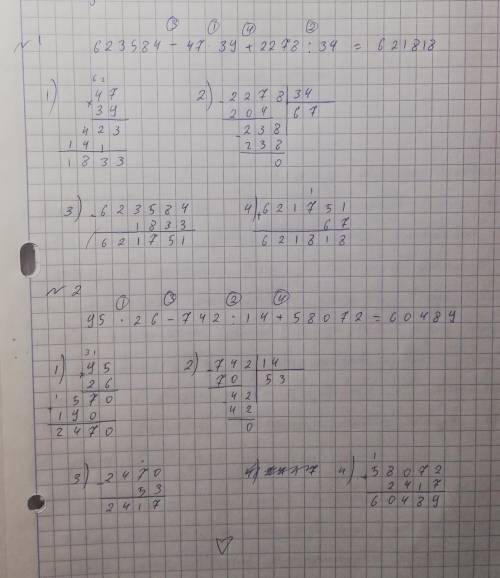 ③ ① ④ ②
№ 1 623584 - 47 · 39 + 2278 : 34 = 621818
1) 2)
6 2
× 47
39
423
141
1833
- 2278 | 34
204 | 67
- 238
238
0
3) 4)
- 623584
1833
621751
1
+ 621751
67
621818
№ 2
① ③ ② ④
95 · 26 - 742 : 14 + 58072 = 60489
1) 2)
3 1
× 95
26
1
570
190
2470
- 742 | 14
70 | 53
- 42
42
0
3) 4)
- 2470
53
2417
1
+ 58072
2417
60489